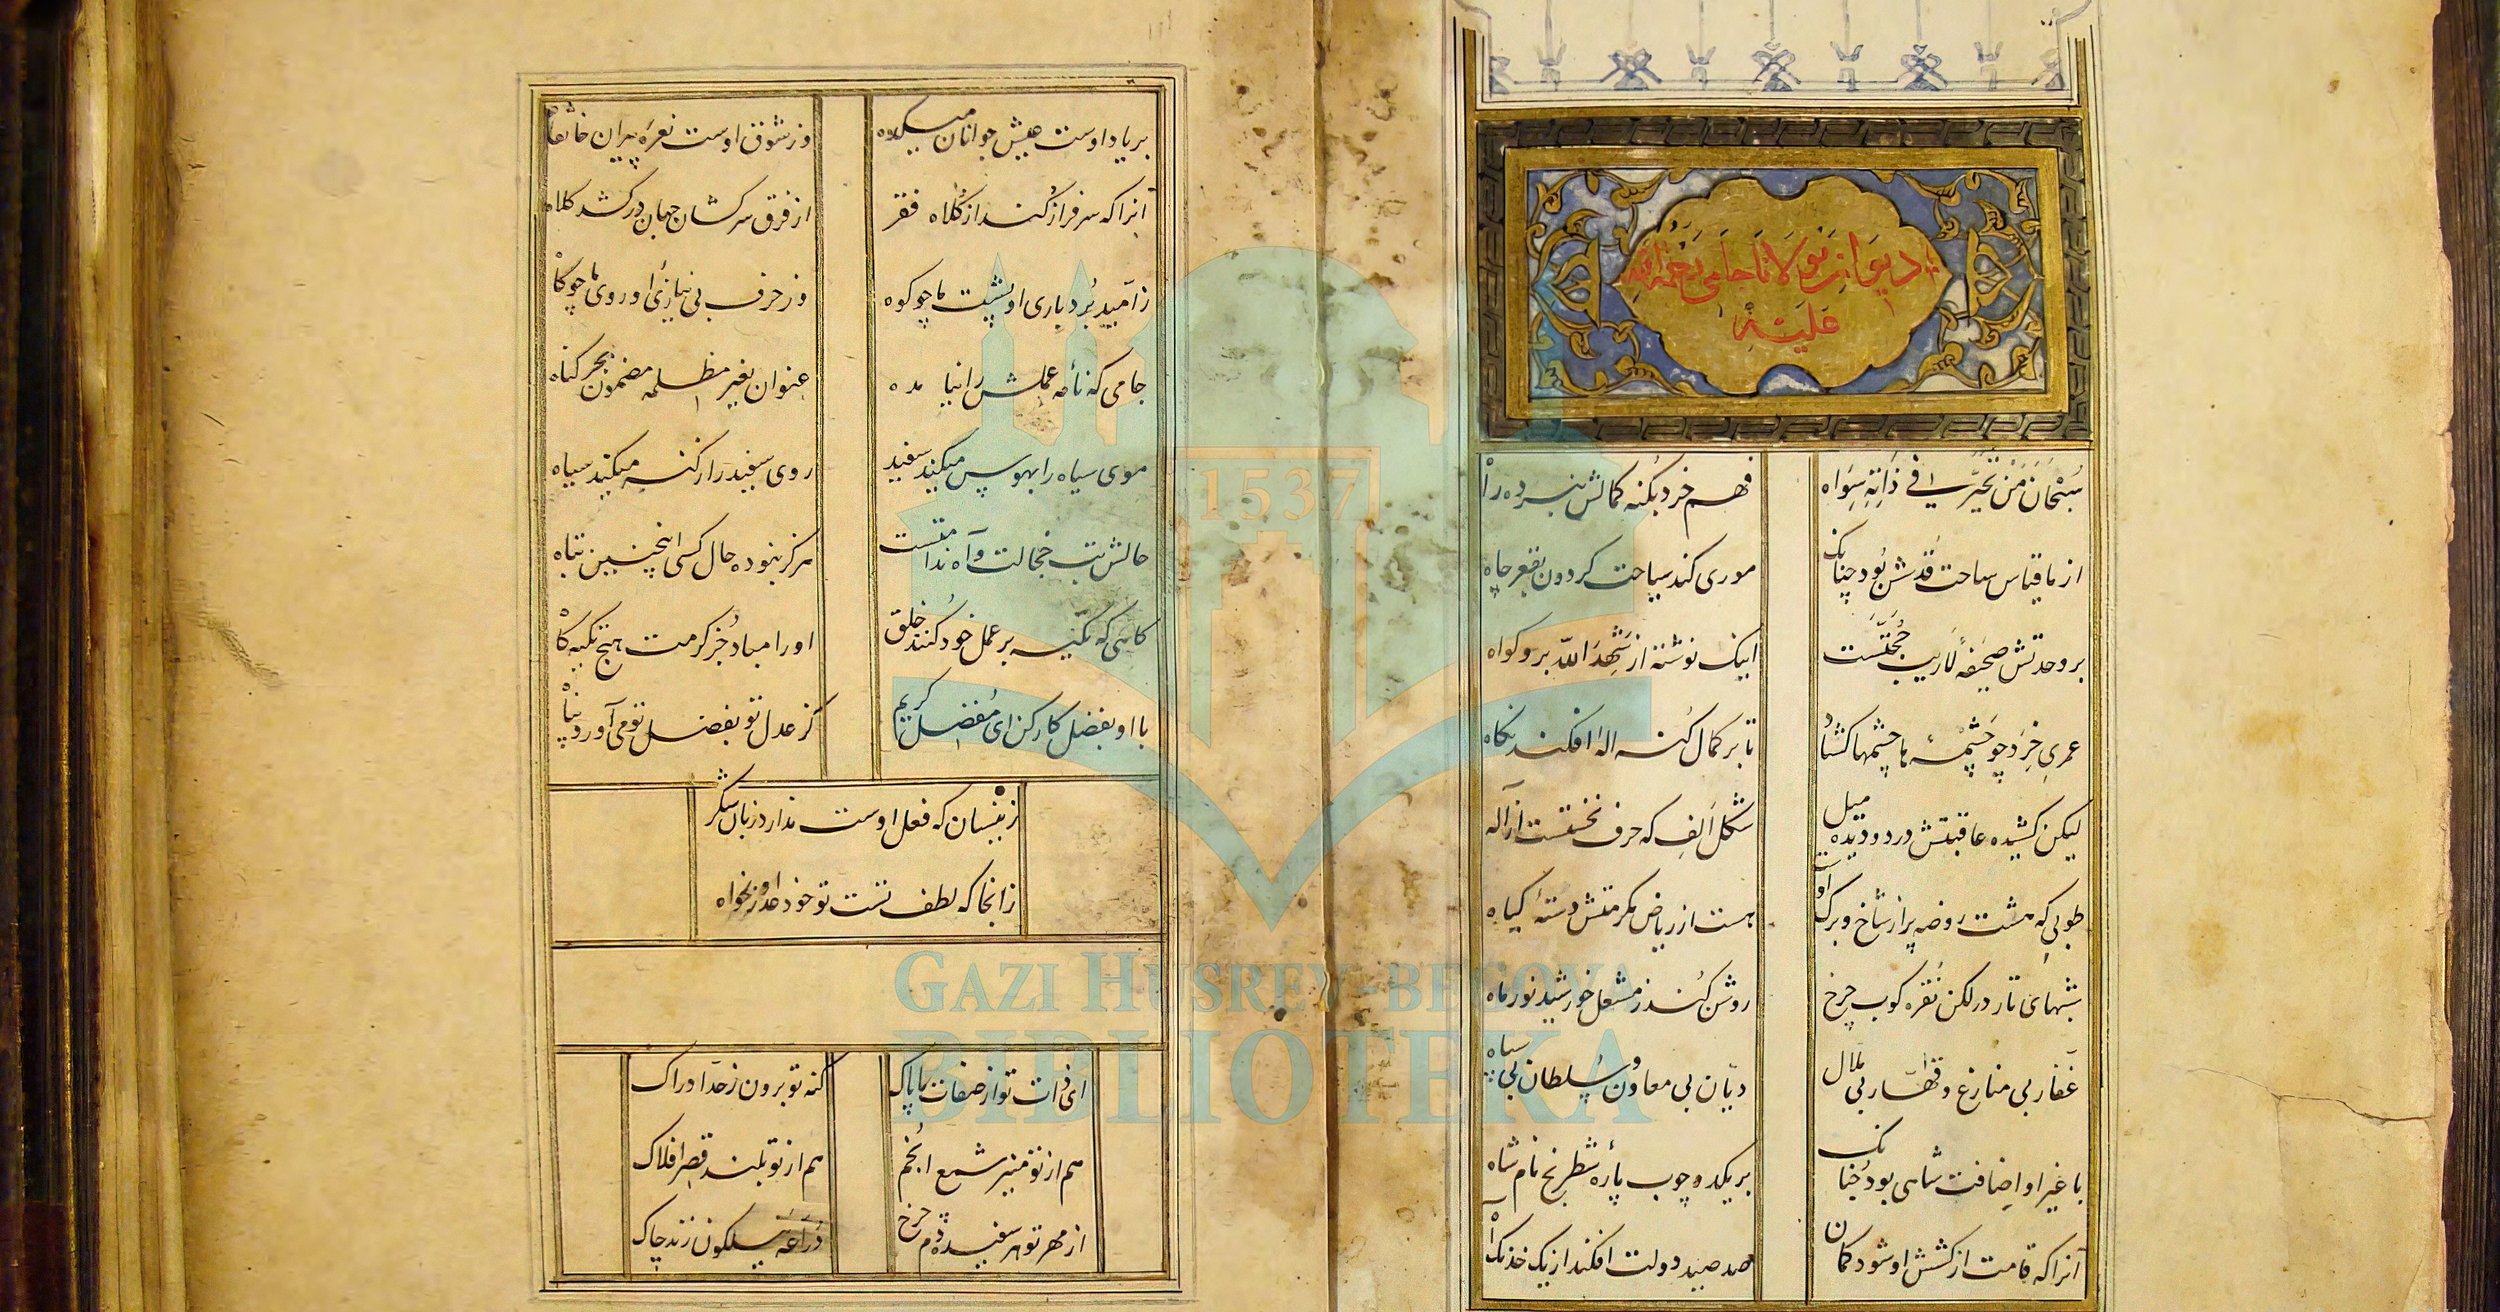 دیوان مولانا جامی رحمة الله
علیه
سُبْحَانَ مَنْ تَحَيَّرَ فِي ذَاتِهِ سِوَاه فهم خرد بکنه کمالش نبرده راه
از ما قیاس ساحت قُدسش بُود چنانک موری کند سیاحت گردون بقعر چاه
بر وحدتش صحیفهٔ لاریب حُجّتست اینک نوشته از شَهِدَ الله برو گواه
عمری خِرَد چو چشمهٔ ها چشمها گشاد تا بر کمال کنه اله افکند نگاه
لیکن کشیده عاقبتش در دو دیده میل شکل اَلِف که حرف نخستست از اله
طوبی که هشت روضه پر از شاخ و برگ اوست هست از ریاض مکرمتش دستهٔ گیاه
شبهای تار در لکن نُقره کوب چرخ روشن کُند ز مشعل خورشید نور ماه
غفّار بی منازع و قهّار بی ملال دیّان بی معاون و سلطان بی سپاه
با غیر او اضافت شاهی بود چنانک بر یکدو چوب پاره ز شطرنج نام شاه
آنرا که قامت از کشش او شود کمان صد صید دولت افکند از یک خدنگ آه
بر یاد اوست عیش جوانان میکده وز شوق اوست نعرهٔ پیران خانقاه
آنرا که سرفراز کند از کلاه فقر از فرق سرکشان جهان درکشد کلاه
ز امّید بُردباری او پشت ما چو کوه وز حرف بی نیازئ او روی ما چو کاه
جامی که نامهٔ عملش را نیامده عنوان بغیر مظلمه مضمون بجز گناه
موی سیاه را بهوس میکند سفید روی سفید را ز گنه میکند سیاه
حالش تب خجالت و آه ندامتست هرگز نبوده حال کسی اینچنین تباه
گاهی که تکیه بر عمل خود کنند خلق او را مباد جز کرمت هیچ تکیه گاه
با او بفضل کار کن ای مُفضِل کریم کز عدل تو بفضل تو می آورد پناه
زینسان که فعل اوست ندارد زبان شکر
زانجا که لطف تست تو خود عذر او بخواه
ای ذات تو از صفات ما پاک کنه تو برون ز حدّ ادراک
هم از تو منیر شمع انجم هم از تو بلند قصر افلاک
از مهر تو هر سفیده دم چرخ دُرّاعهٔ نیلگون زند چاک